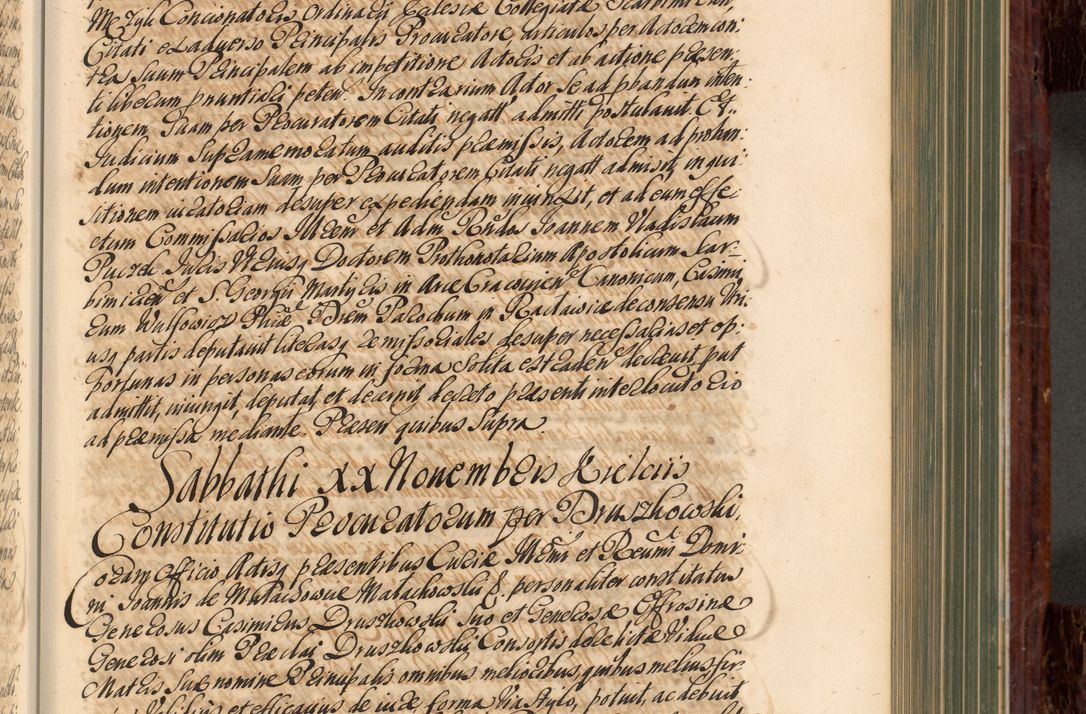 Mczyk Concionatoris Ordinarii Ecclesiæ Collegiatæ Scarbimirien:
Citati et ex adverso Principalis Procuratore articulos per Actorem con:
tra suum Principalem ab impetitione Actoris et ab actione præsen:
ti liberum pnuntiari peten. In contrarium Actor se ad pbandum inten:
tionem suam per Procuratorem Citati negatt admitti postulavit. Et
Judicium supramemoratum auditis præmissis, Actorem ad proban:
dum intentionem suam per Procuratorem Citati negatt admisit, inqui:
sitionem iuratoriam desuper expediendam iniunxit, et ad eum effe:
ctum Commissarios Illrem et Adm Rndos Joannem Vladislaum
Puczek Juris Utriusq Doctorem Prothonotarium Apostolicum Scar-
bimirien et S. Georgii Martyris in Arce Cracovien Canonicum, Casimi:
rum Walfowicz Præm Parochum in Raciawice de consensu utri:
usq partis deputavit literasq remissoriales desuper necessarias et op:
portunas in personas eorum in forma solita extraden decrevit, put
admittit, iniungit, deputat et decernit decreto præsenti interlocutorio
ad præmissa mediante. Præsen quibus supra
Sabbathi XX Novembris Kielciis
Constitutio Procuratorum per Druszkowski.
Coram Officio Actisq præsentibus Curiæ Illmi et Rcumi Domi:
ni Joannis de Małachowice Małachowski E. personaliter constitutus
Generosus Casimirus Druszkowski suo et Generosæ Offrosinæ
Generosi olim Præclai Druszkowski Consortis derelictæ Viduæ
Matris suæ nomine Principalis omnibus melioribus quibus melius fir:
Validius et efficacius de iure, forma via stylo, potuit, ac debuit